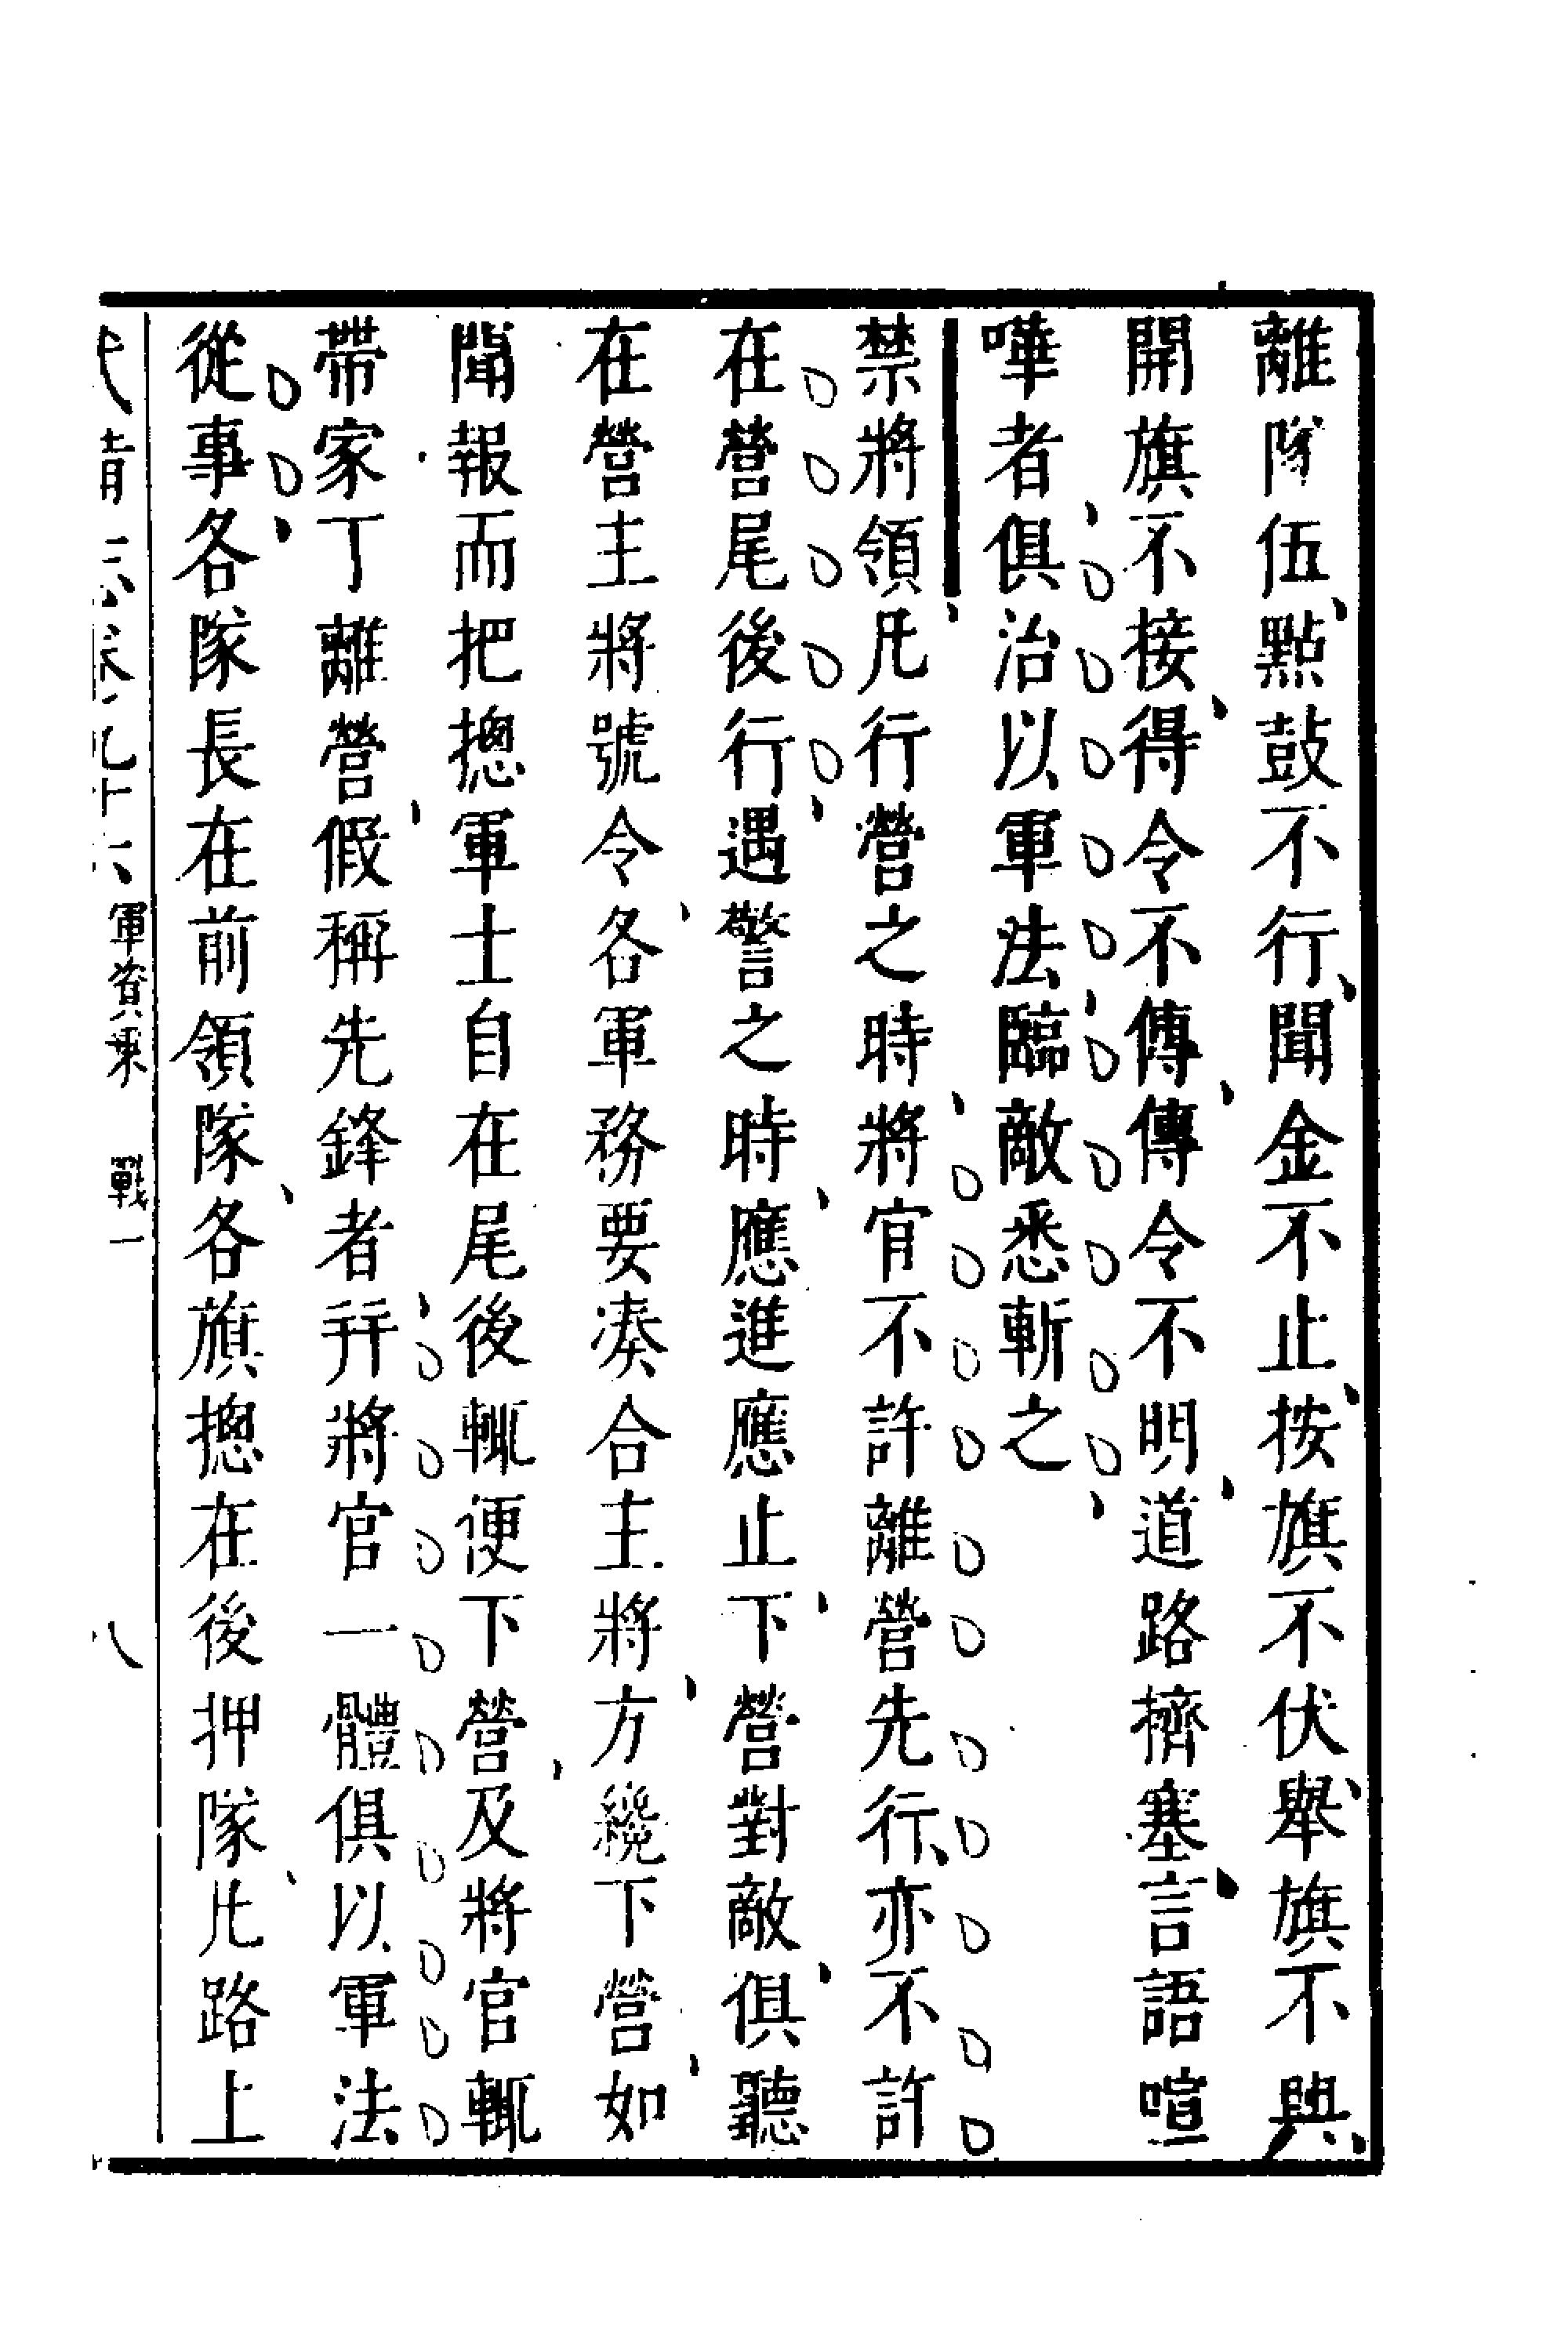 離隊伍點鼓不行聞金不止按旗不伏舉旗不與
開旗不接得令不傳傳令不明道路擠塞言語喧
嘩者俱治以軍法臨敵悉斬之
禁將領凡行營之時將官不許離營先行亦不許
在營尾後行遇警之時應進應止下營對敵俱聽
在營主將號令各軍務要凑合主將方纔下營如
聞報而把摠軍士自在尾後輒便下營及將官輒
帶家丁離營假稱先鋒者幷將官一體俱以軍法
從事各隊長在前領隊各旗摠在後押隊凡路上
武備志卷九十六 軍資乘 戰一 八